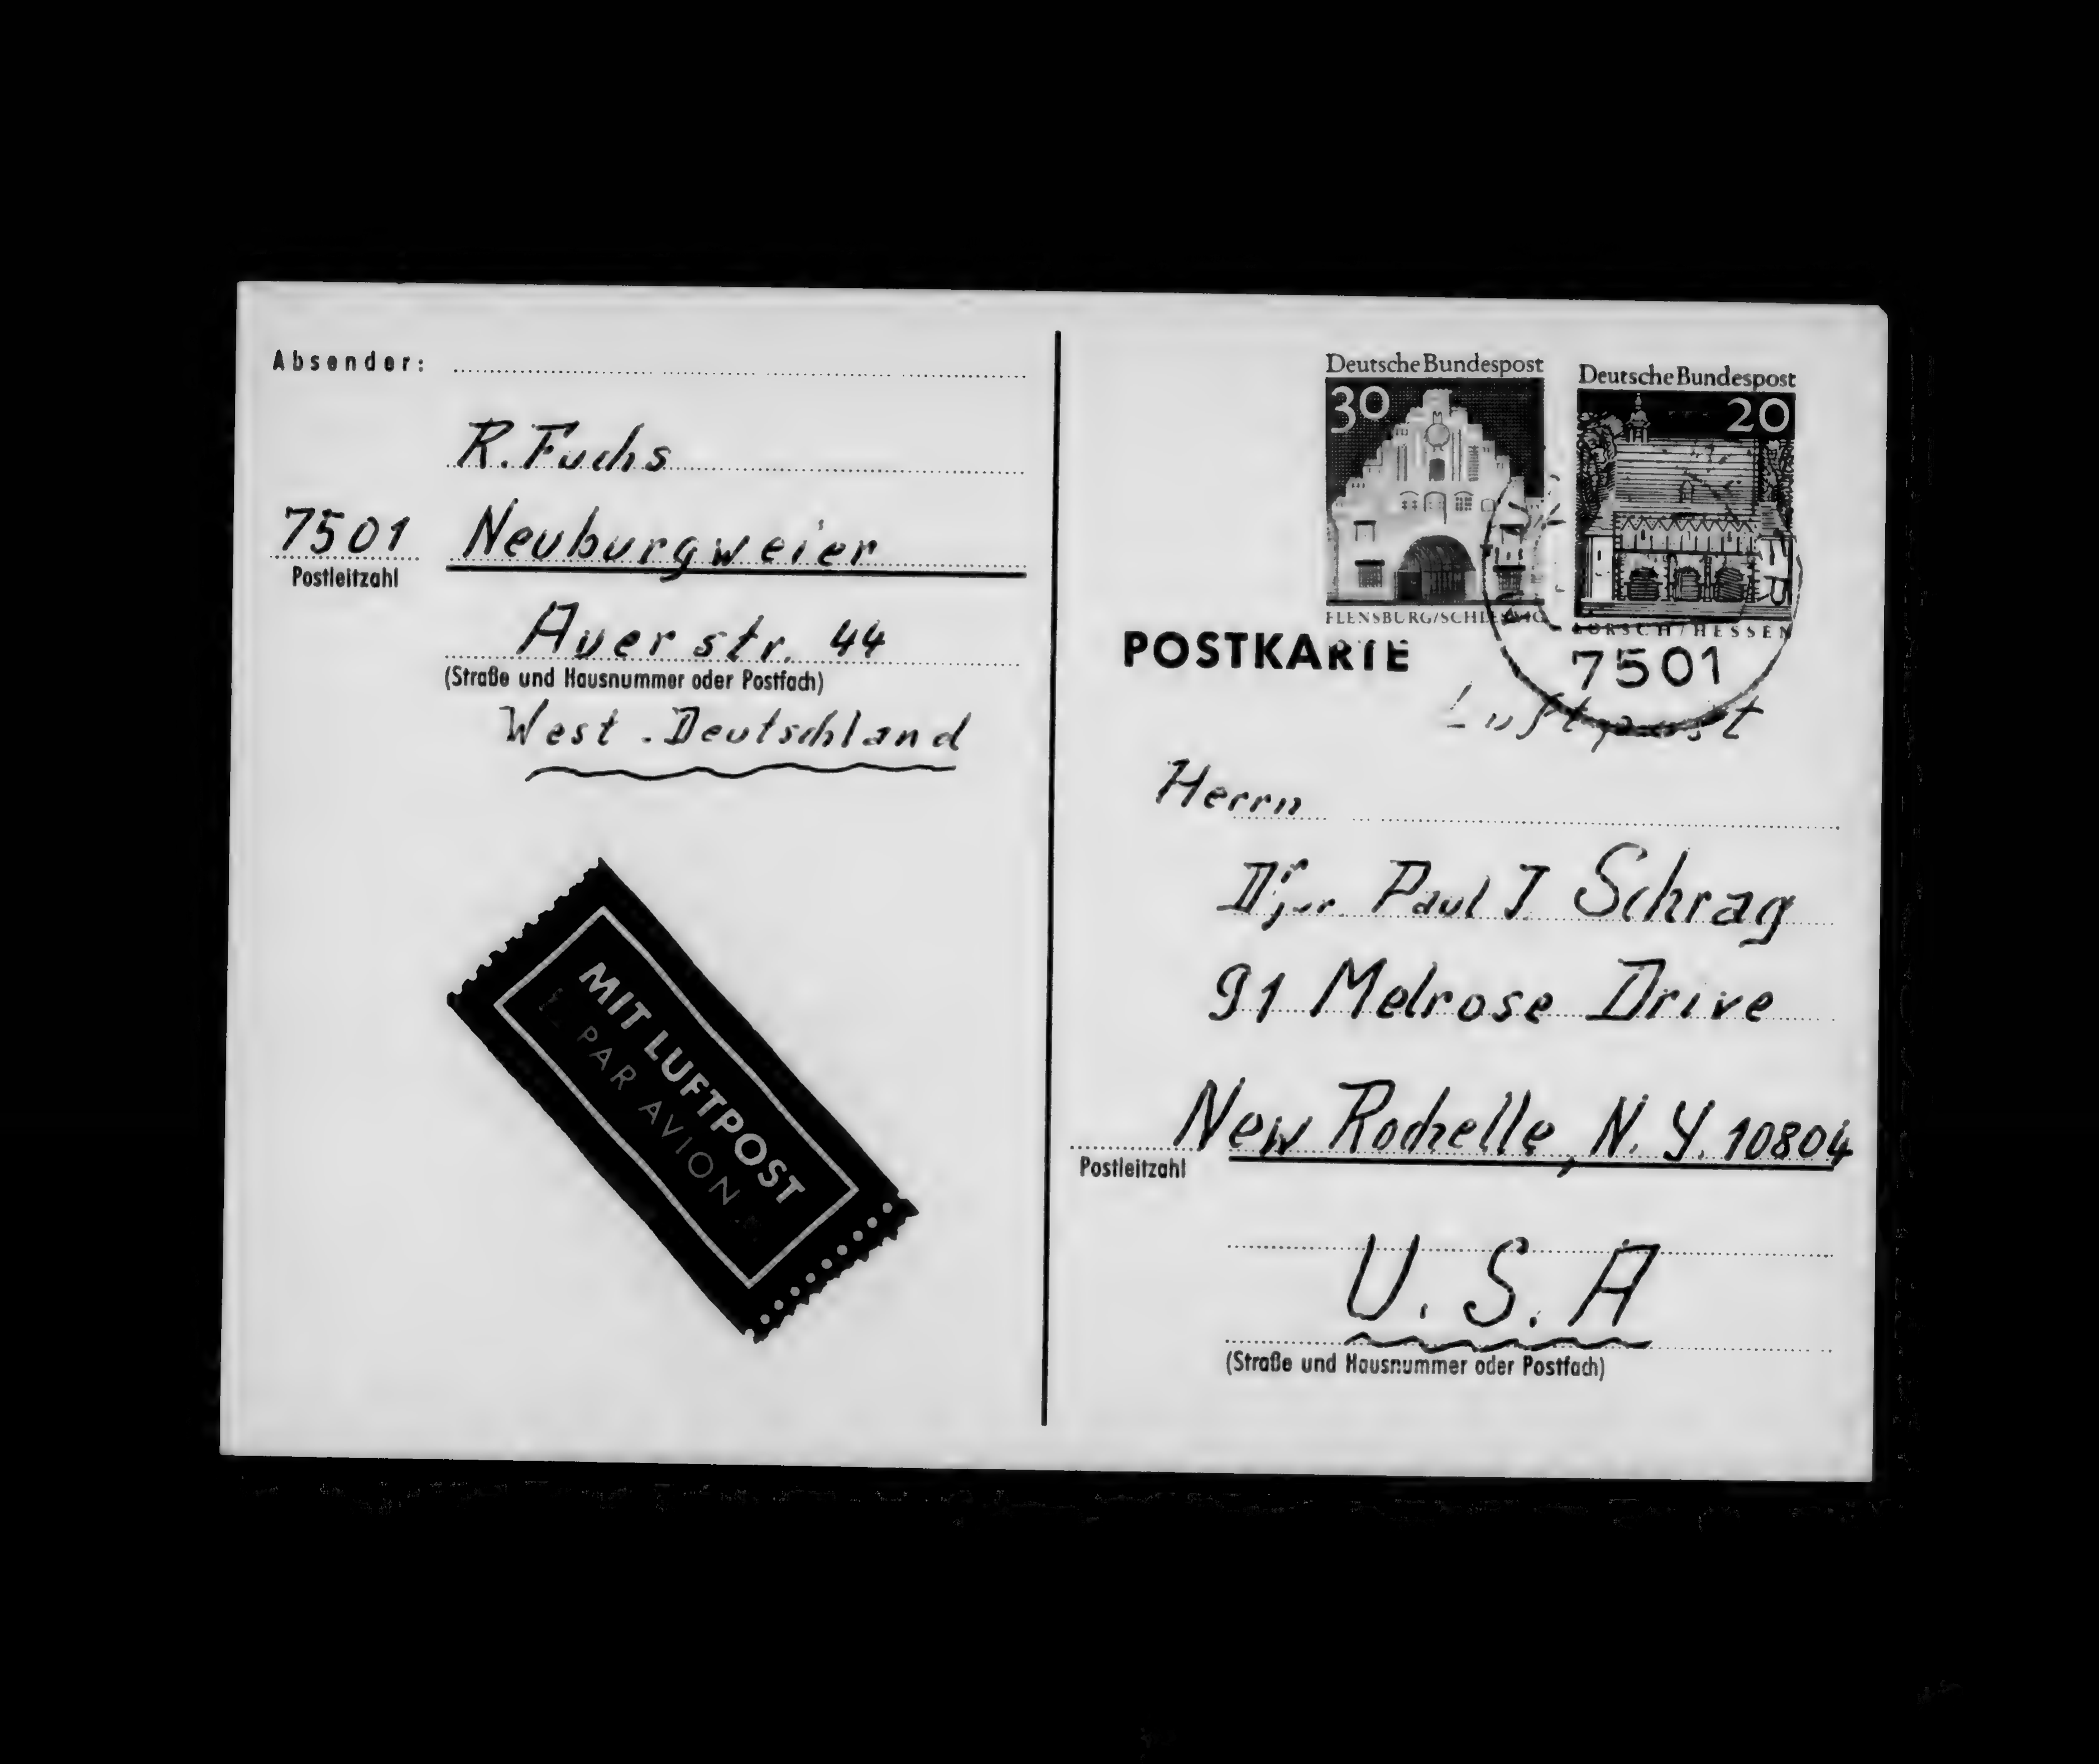 Absender:
R. Fuchs
7501 Neuburgweier
Postleitzahl
Auer str. 44
(Straße und Hausnummer oder Postfach)
West-Deutschland
MIT LUFTPOST
PAR AVION
Deutsche Bundespost
30
FLENSBURG/SCHLESWIG
Deutsche Bundespost
20
LORSCH/HESSEN
7501
POSTKARTE
Luftpost
Herrn
Dr jur. Paul J Schrag
91 Melrose Drive
New Rochelle, N. Y. 10804
Postleitzahl
U. S. A
(Straße und Hausnummer oder Postfach)